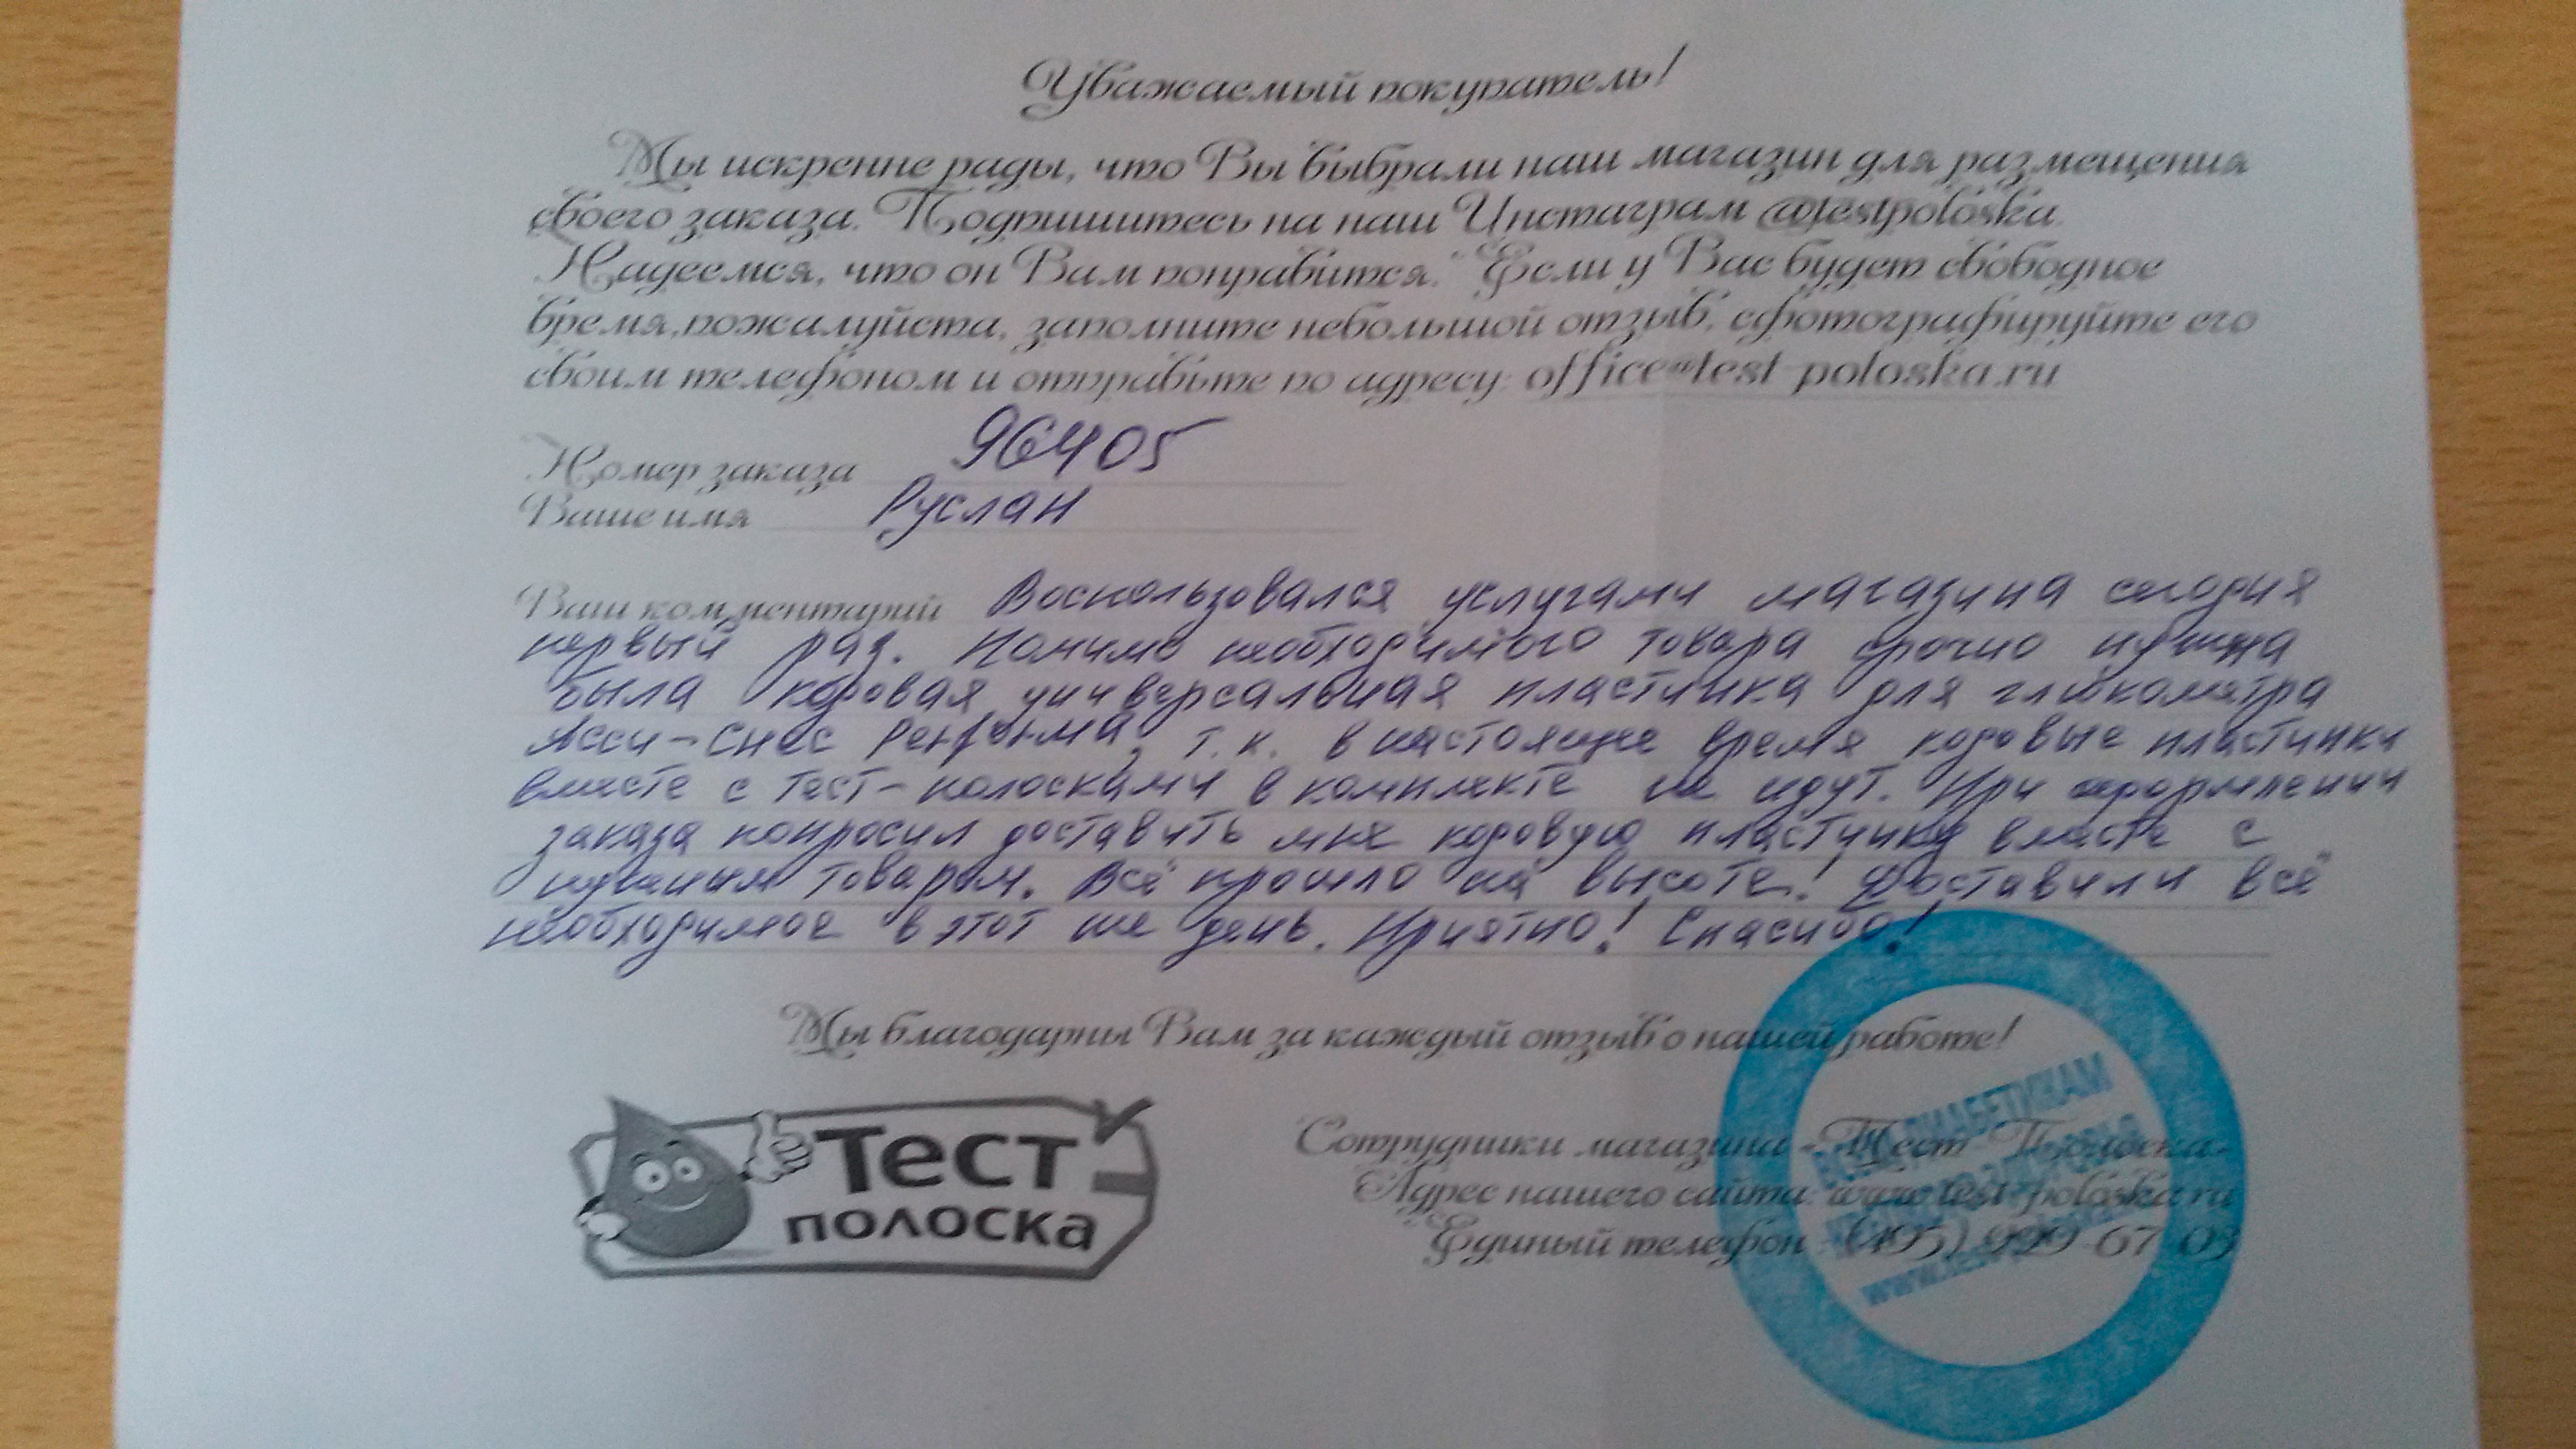 Уважаемый покупатель!
Мы искренне рады, что Вы выбрали наш магазин для размещения
своего заказа. Подпишитесь на наш Инстаграм @testpoloska.
Надеемся, что он Вам понравится. Если у Вас будет свободное
время, пожалуйста, заполните небольшой отзыв, сфотографируйте его
своим телефоном и отправьте по адресу: office@test-poloska.ru
Номер заказа 96405
Ваше имя Руслан
Ваш комментарий Воспользовался услугами магазина сегодня
первый раз. Помимо необходимого товара срочно нужна
была кодовая универсальная пластинка для глюкометра
Акси-Чек Перформа, т.к. в настоящее время кодовые пластинки
вместе с тест-полосками в комплекте не идут. При оформлении
заказа попросил доставить мне кодовую пластинку вместе с
нужным товаром. Всё прошло на высоте! Доставили всё
необходимое в этот же день. Приятно! Спасибо!
Мы благодарны Вам за каждый отзыв о нашей работе!
Тест
полоска
Сотрудники магазина «Тест-Полоска»
Адрес нашего сайта: www.test-poloska.ru
Единый телефон: (495) 999-67-03
ДИАБЕТИКАМ